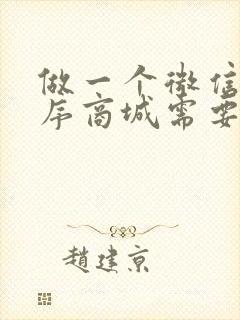 做一个微信
序商城需要
趙建京